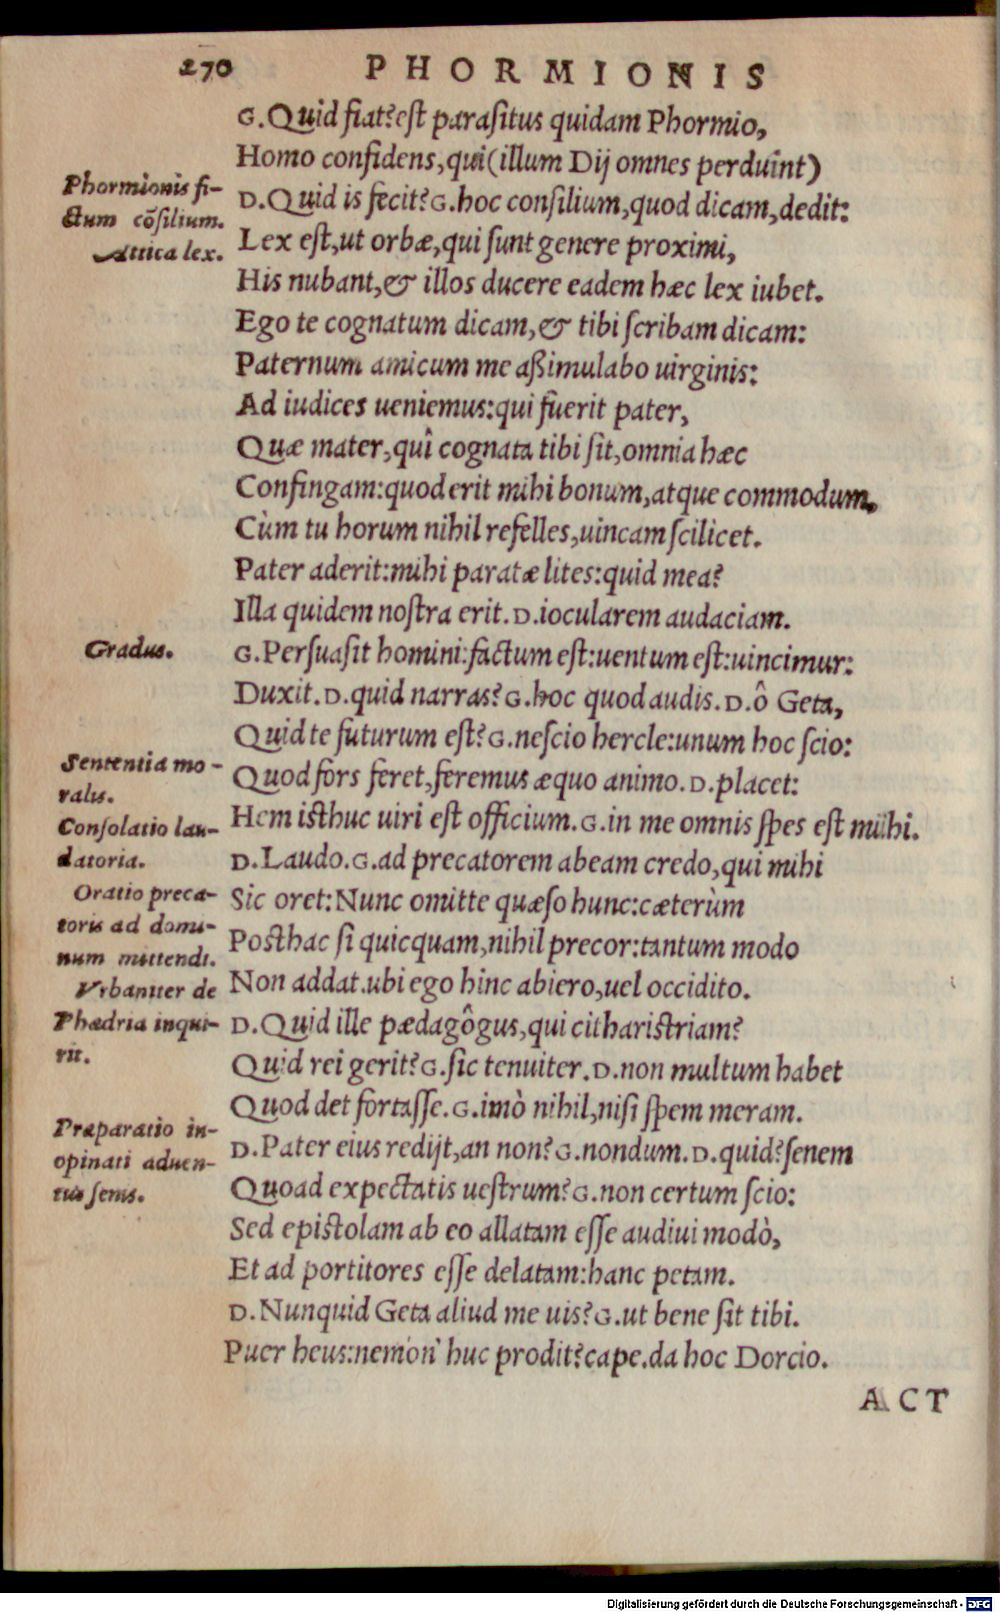 270 PHORMIONIS
G. Quid fiat? eſt paraſitus quidam Phormio,
Homo confidens, qui (illum Dij omnes perduint)
Phormionis fi-
D. Quid is fecit? G. hoc conſilium, quod dicam, dedit:
ctum cõſilium.
Lex eſt, ut orbæ, qui ſunt genere proximi,
Attica lex.
His nubant, & illos ducere eadem hæc lex iubet.
Ego te cognatum dicam, & tibi ſcribam dicam:
Paternum amicum me aßimulabo uirginis:
Ad iudices ueniemus: qui fuerit pater,
Quæ mater, quî cognata tibi ſit, omnia hæc
Confingam: quod erit mihi bonum, atque commodum,
Cùm tu horum nihil refelles, uincam ſcilicet.
Pater aderit: mihi paratæ lites: quid mea?
Illa quidem noſtra erit. D. iocularem audaciam.
Gradus.
G. Perſuaſit homini: factum eſt: uentum eſt: uincimur:
Duxit. D. quid narras? G. hoc quod audis. D. ô Geta,
Quid te futurum eſt? G. neſcio hercle: unum hoc ſcio:
Sententia mo-
Quod fors feret, feremus æquo animo. D. placet:
ralis.
Hem iſthuc uiri eſt officium. G. in me omnis ſpes eſt mihi.
Conſolatio lau-
datoria.
D. Laudo. G. ad precatorem abeam credo, qui mihi
Oratio preca-
Sic oret: Nunc omitte quæſo hunc: cæterùm
toris ad domi-
Poſthac ſi quicquam, nihil precor: tantum modo
num mittendi.
Non addat. ubi ego hinc abiero, uel occidito.
Vrbaniter de
Phædria inqui-
D. Quid ille pædagôgus, qui cithariſtriam?
rit.
Quid rei gerit? G. ſic tenuiter. D. non multum habet
Quod det fortaſſe. G. imò nihil, niſi ſpem meram.
Præparatio in-
D. Pater eius redijt, an non? G. nondum. D. quid? ſenem
opinati aduen-
Quoad expectatis ueſtrum? G. non certum ſcio:
tus ſenis.
Sed epiſtolam ab eo allatam eſſe audiui modò,
Et ad portitores eſſe delatam: hanc petam.
D. Nunquid Geta aliud me uis? G. ut bene ſit tibi.
Puer heus: nemon' huc prodit? cape. da hoc Dorcio.
ACT
Digitalisierung gefördert durch die Deutsche Forschungsgemeinschaft - DFG